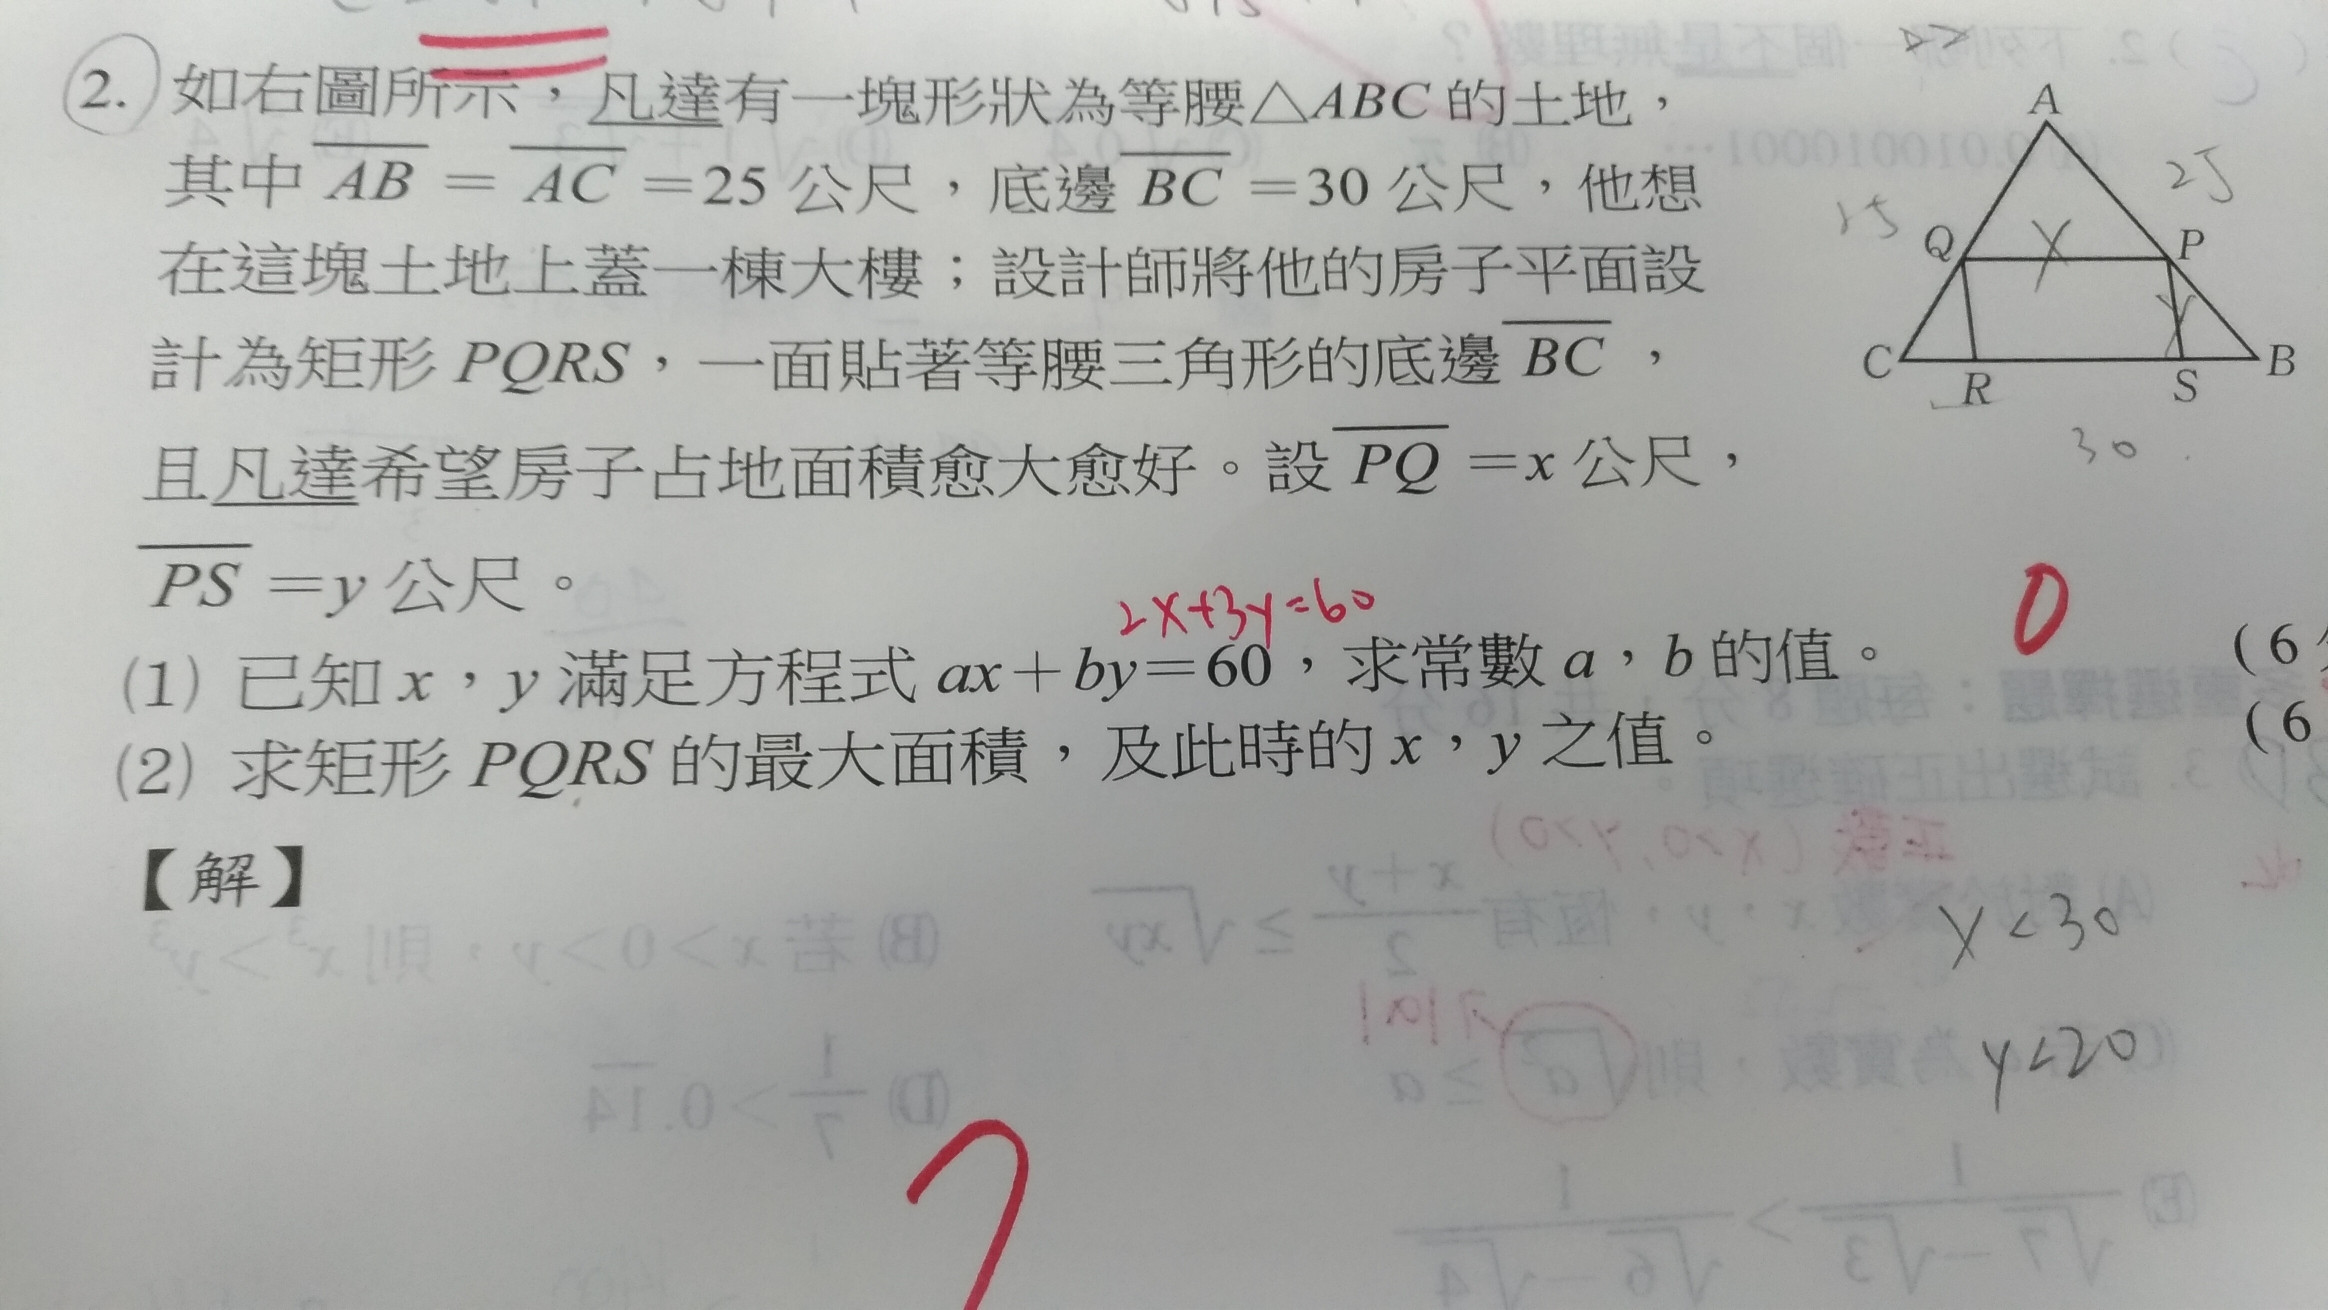 2. 如右圖所示，凡達有一塊形狀為等腰△ABC的土地，
其中 AB = AC =25 公尺，底邊 BC =30 公尺，他想
在這塊土地上蓋一棟大樓；設計師將他的房子平面設
計為矩形 PQRS，一面貼著等腰三角形的底邊 BC ，
且凡達希望房子占地面積愈大愈好。設 PQ =x 公尺，
PS =y 公尺。
2x+3y=60
(1) 已知 x，y 滿足方程式 ax+by=60，求常數 a，b 的值。
(6
(2) 求矩形 PQRS 的最大面積，及此時的 x，y 之值。
(6
【解】
A
25
25
Q
x
P
y
C
R
S
B
30
0
x<30
y<20